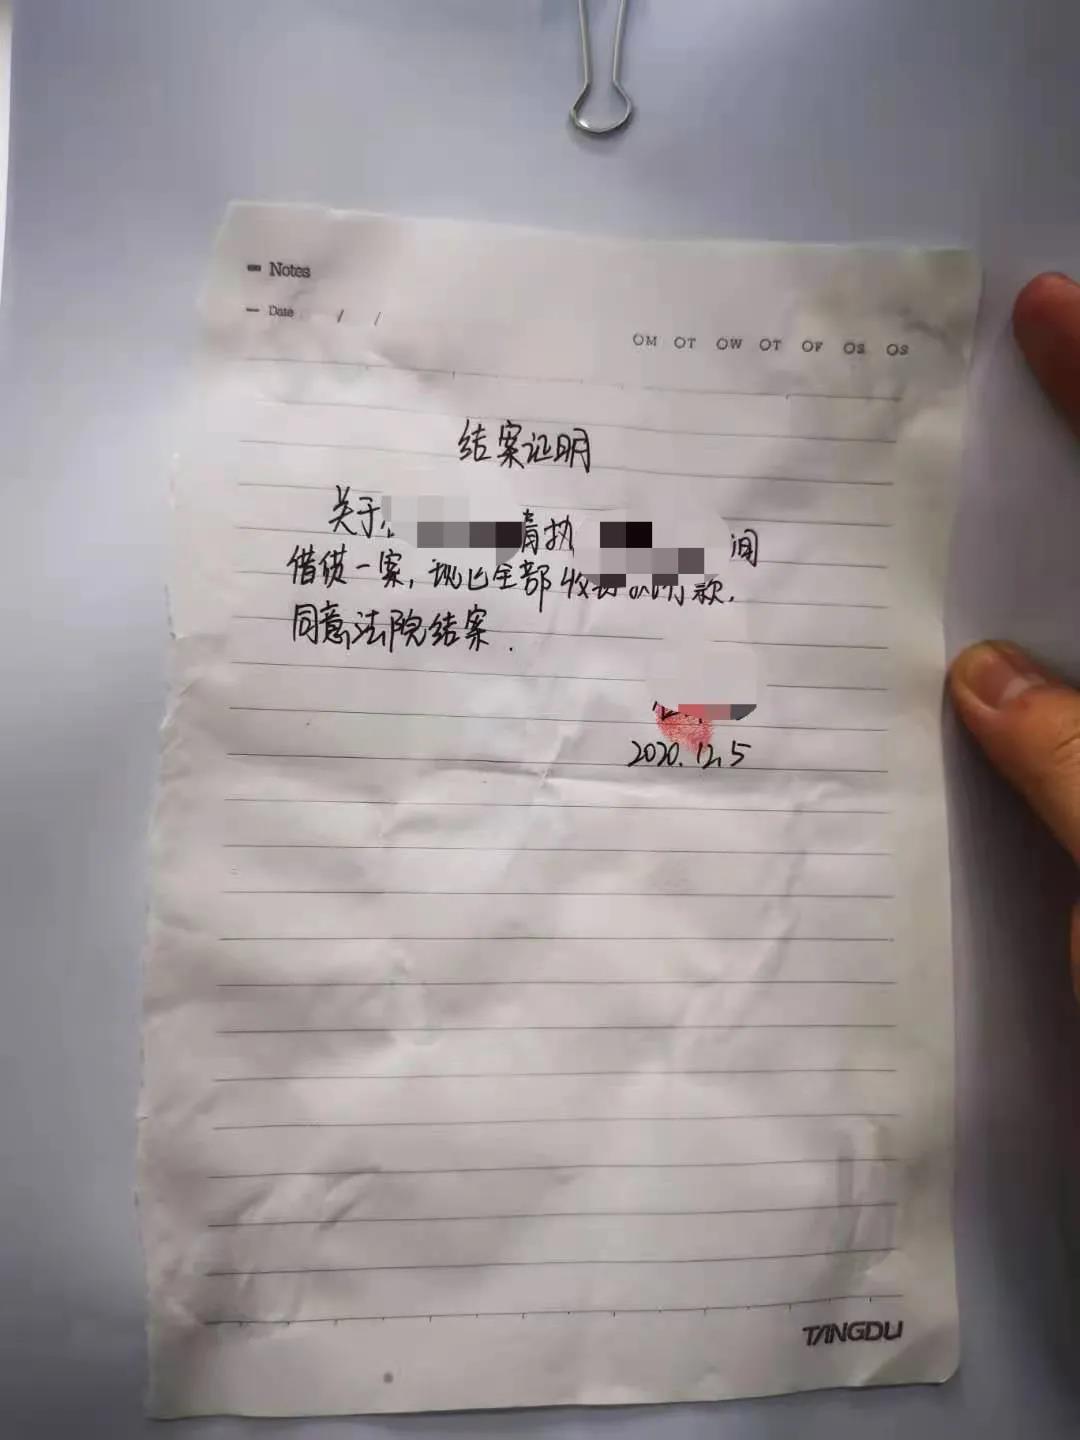 Notes
Date / /
OM OT OW OT OF OS OS
结案证明
关于 请执 间
借贷一案，现已全部收 款．
同意法院结案．
2020.12.5
TANGDU